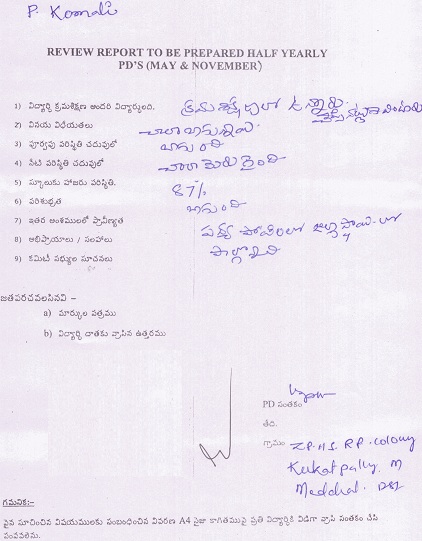 P. Komali
REVIEW REPORT TO BE PREPARED HALF YEARLY
PD'S (MAY & NOVEMBER)
1) విద్యార్ధి క్రమశిక్షణ అందరి విద్యార్ధులది. క్రమశిక్షణలో ఉన్నారు.
2) వినయ విధేయతలు చాలా బాగున్నాయి.
3) పూర్వపు పరిస్థితి చదువులో బాగుంది
4) నేటి పరిస్థితి చదువులో చాలా మెరుగైంది
5) స్కూలుకు హాజరు పరిస్థితి. 87%
6) పరిశుభ్రత బాగుంది
7) ఇతర అంశములలో ప్రావీణ్యత
8) అభిప్రాయాలు / సలహాలు
9) కమిటీ సభ్యుల సూచనలు
జతపరచవలసినవి –
a) మార్కుల పత్రము
b) విద్యార్ధి దాతకు వ్రాసిన ఉత్తరము
PD సంతకం
తేది.
గ్రామం Z.P.H.S. R.P. colony
Kukatpally. M
Medchal.
గమనిక:-
పైన సూచించిన విషయములకు సంబంధించిన వివరణ A4 సైజు కాగితముపై ప్రతి విద్యార్ధికి విడిగా వ్రాసి సంతకం చేసి
పంపవలెను.